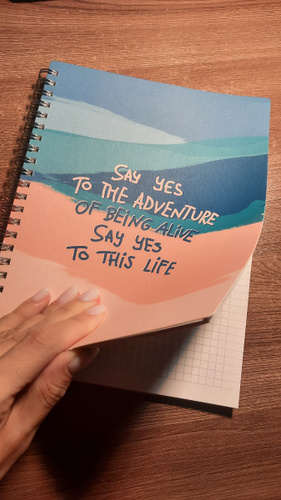 SAY YES
TO THE ADVENTURE
OF BEING ALIVE
SAY YES
TO THIS LIFE